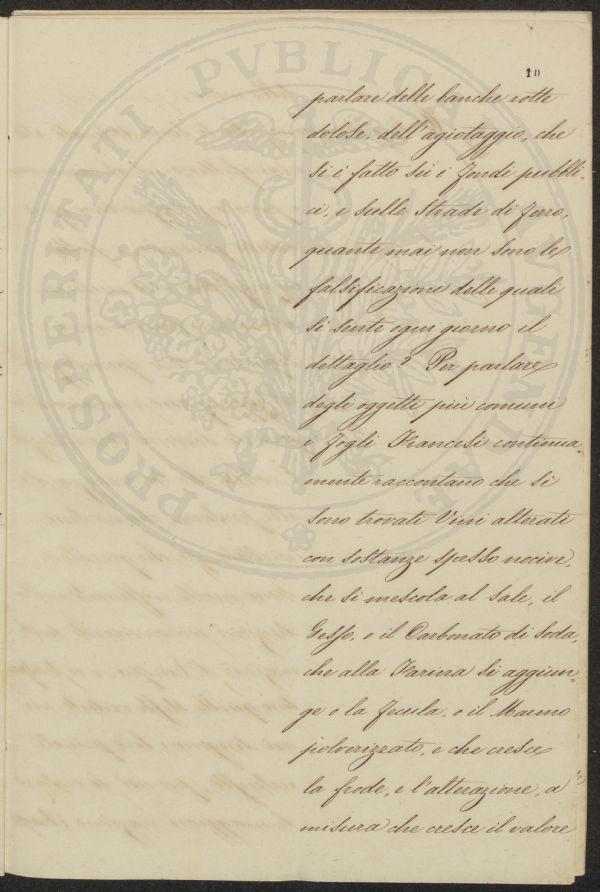 10
parlare delle banche rotte
dolose, dell'agiotaggio, che
si é fatto sù i fondi pubbli-
ci, e sulle Strade di ferro,
quante mai non sono le
falsificazione delle quali
si sente ogni giorno il
dettaglio? Per parlare
degli oggetti più comuni
i fogli Francesi continua
mente raccontano che si
sono trovati Vini alterati
con sostanze spesso nocive,
che si mescola al sale, il
Gesso, o il Carbonato di Soda,
che alla Farina si aggiun-
ge o la fecula, o il Marmo
polverizzato, e che cresce
la frode, e l'alterazione, a
misura che cresce il valore
PROSPERITATI PVBLICAE